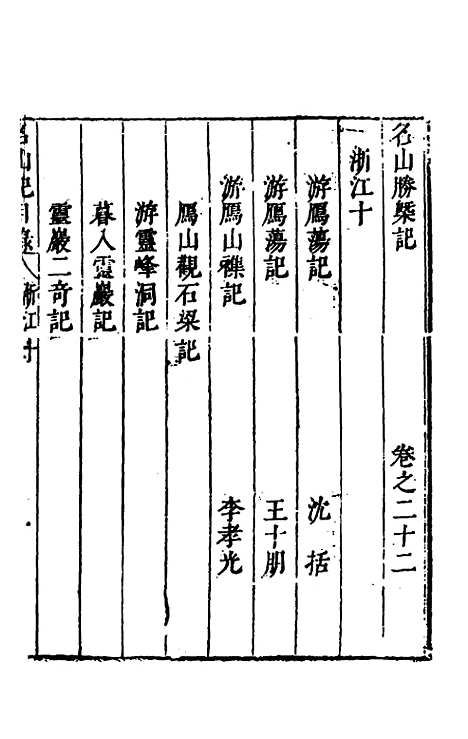 名山勝槩記　卷之二十二
浙江十
游鴈蕩記　沈括
游鴈蕩記　王十朋
游鴈山襍記　李孝光
鴈山觀石梁記
游靈峰洞記
暮入靈巖記
靈巖二奇記
名山記目錄　浙江十